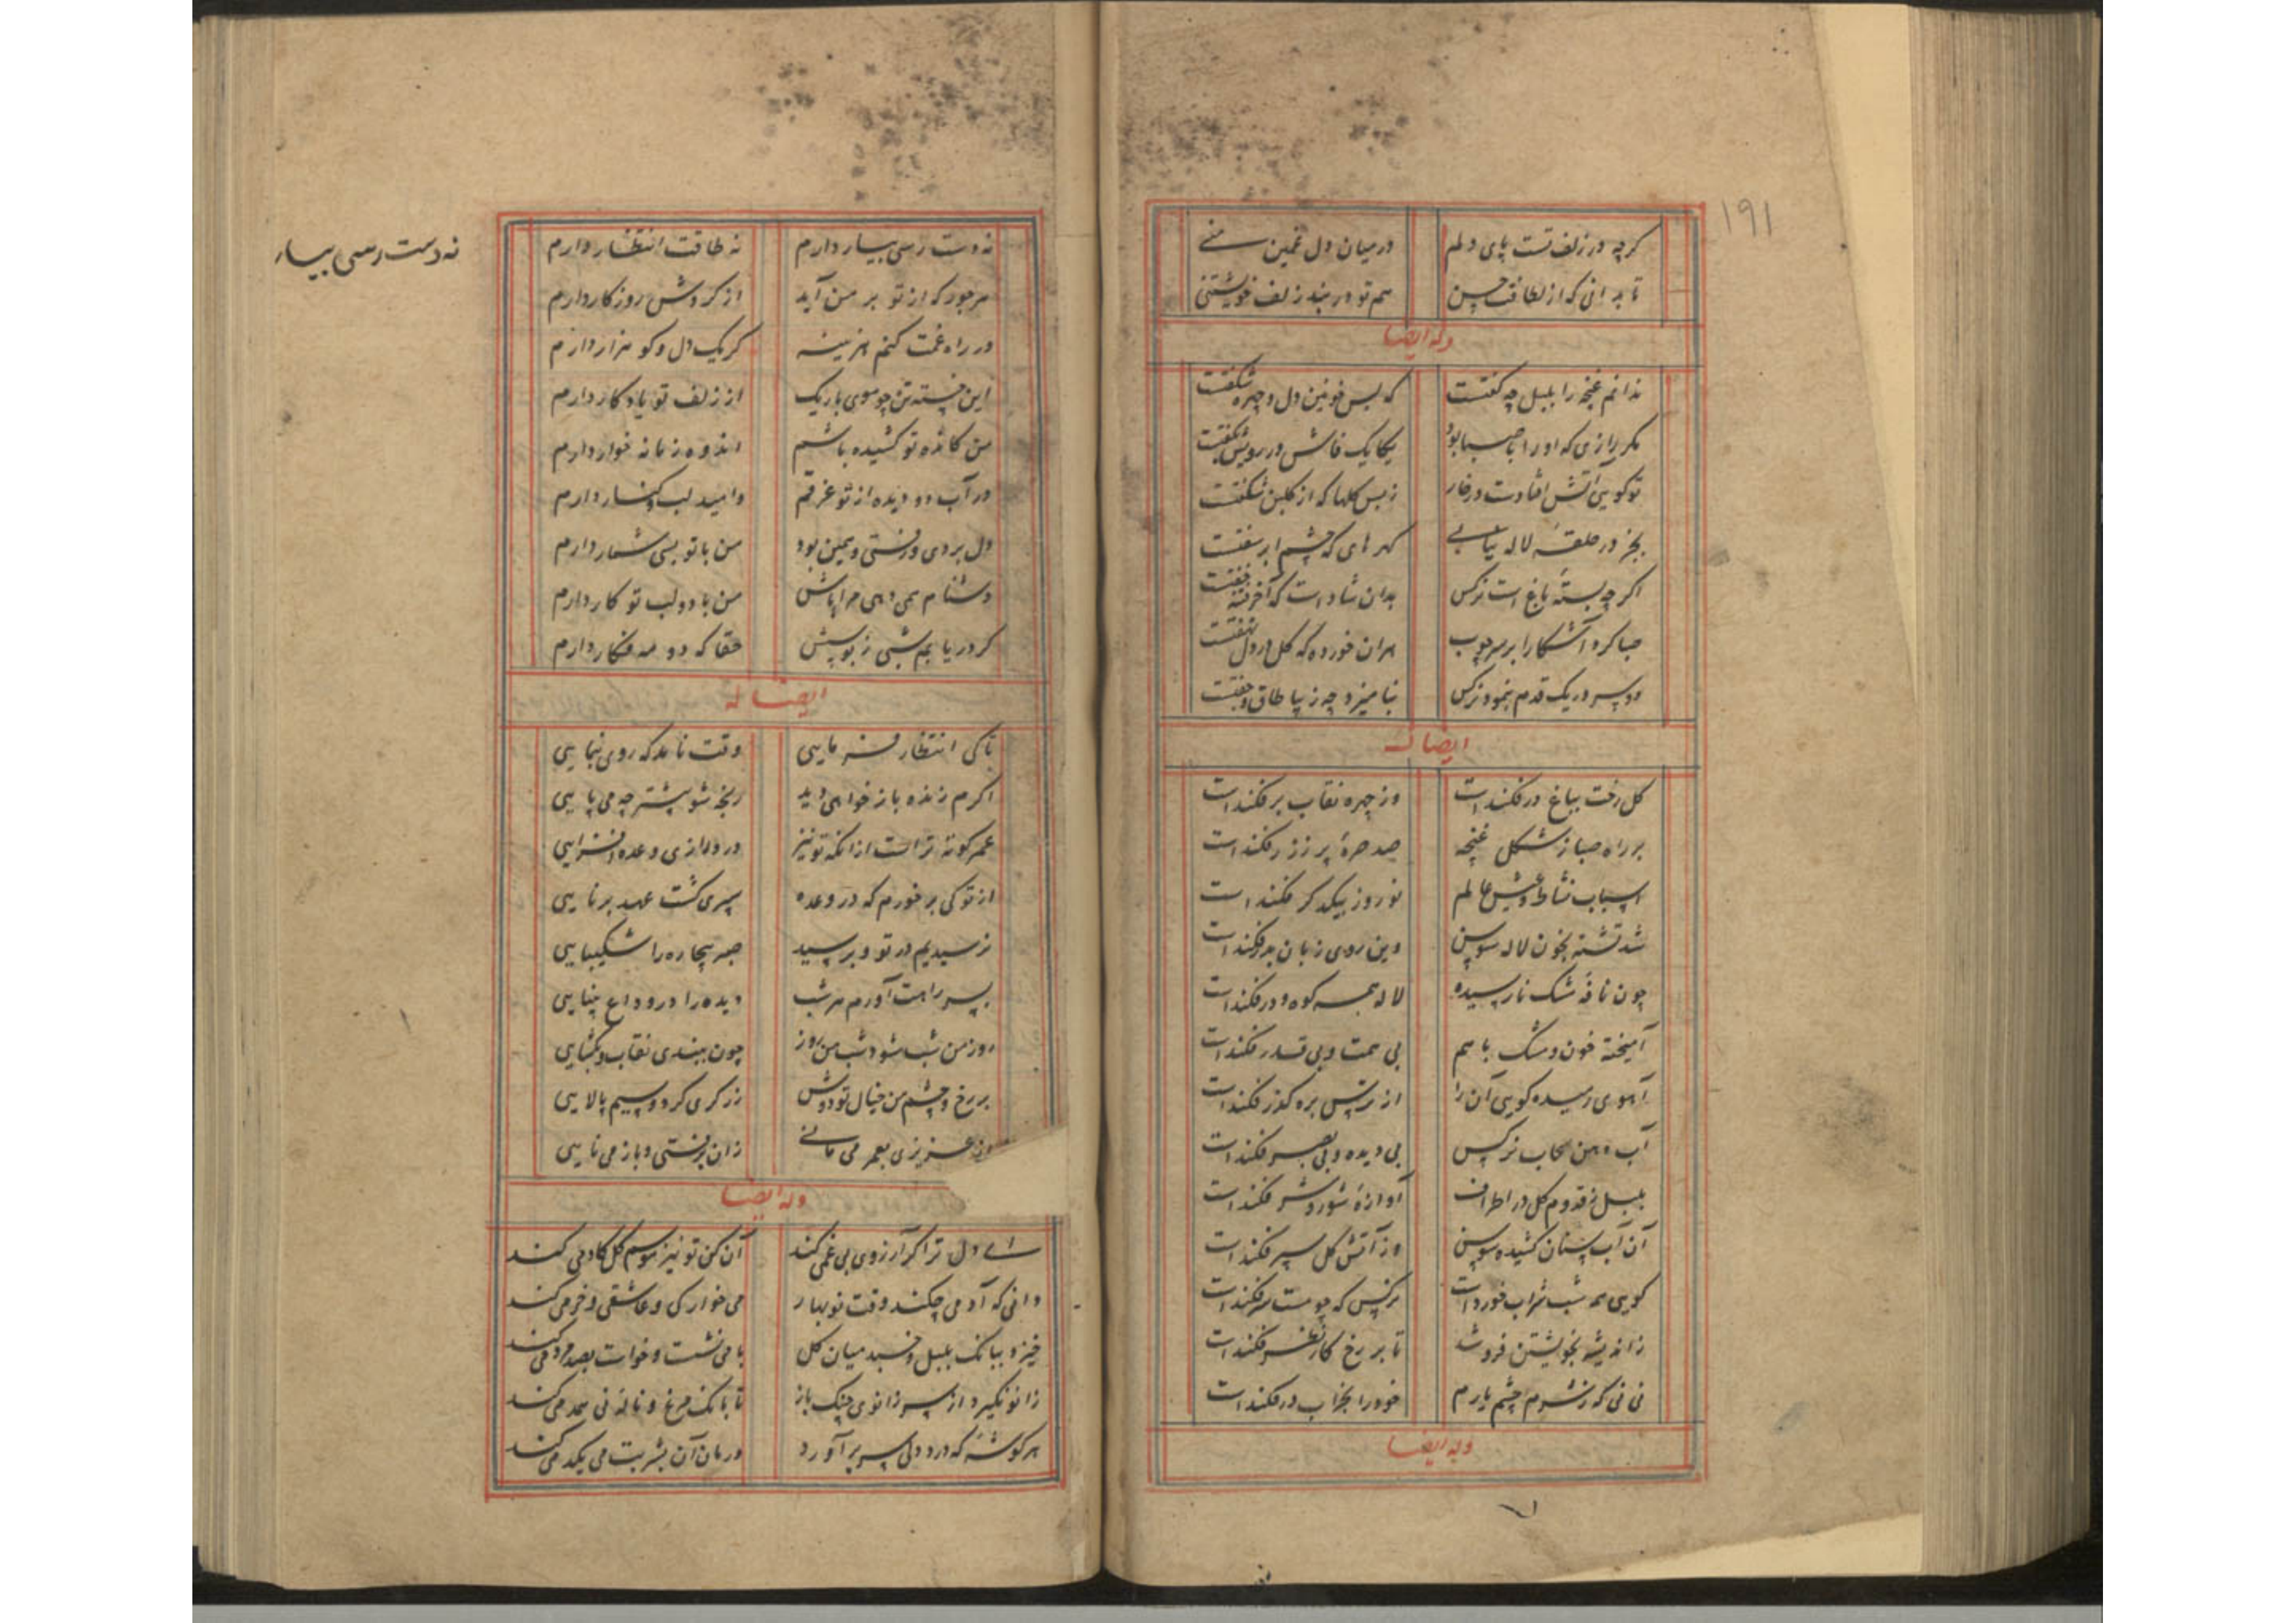 ۱۹۱
کرچه در زلف تست پای دلم در میان دل غمین منی
تا بدانی که از لطافت حسن هم تو در بند زلف خویشتنی
وله ایضا
ندانم غنجه را بلبل چه کفتست که بس خونین دل و چهره شکفتست
مکر رازی که او را با صبا بود یکایک فاش در رویش بکفتست
تو کویی آتش افتادست در خار ز بس کلها که از کلبن شکفتست
بجز در حلقه لاله نیابی کهرهای که چشم ابر سفتست
اکرچه بسته باغ است نرکس بدان شاد است که آخر خفتست
صبا کرد آشکارا بر سر چوب هران خورده که کل در دل نهفتست
دو سر در یک قدم بنمود نرکس بنامیزد چه زیبا طاق و جفتست
ایضا له
کل رخت بباغ در فکندست وز چهره نقاب بر فکندست
بر راه صبا ز شکل غنچه صد صره پر ز زر فکندست
اسباب نشاط و عیش عالم نوروز بیکدکر فکندست
شد تشنه بخون لاله سوسن وین روی زبان بدر فکندست
چون نافه مشک نارسیده لاله همه کوه و در فکندست
آمیخته خون و مشک با هم بی سمت و بی قدر فکندست
آهوی رمیده کویی آن را از ترس بره کذر فکندست
آب دهن سحاب نرکس بی دیده و بی بصر فکندست
بلبل ز قدوم کل در اطراف آوازه شور و شر فکندست
آن آب سنان کشیده سوسن وز آتش کل سپر فکندست
کویی همه شب شراب خوردست نرکس که چو مست سر فکندست
زاندیشه بخویشتن فرو شد تا بر رخ کل نظر فکندست
نی نی که ز شرم چشم یارم خود را بخراب در فکندست
وله ایضا
نه دست رسی بیار دارم نه طاقت انتظار دارم
هر جور که از تو بر من آید از کردش روزکار دارم
در راه غمت کنم هزینه کر یک دل و کو هزار دارم
این خسته تن چو موی باریک از زلف تو یادکار دارم
من کانده تو کشیده باشم اندوه زمانه خوار دارم
در آب دو دیده از تو غرقم وامید لب و کنار دارم
دل بردی و رفتی و همین بود من با تو بسی شمار دارم
دشنام همی دهی مرا باش من با دو لب تو کار دارم
کر دریابم شبی ز بوسش حقا که دو مه فکار دارم
ایضا له
تا کی انتظار فرمایی وقت نامد که روی بنمایی
اکرم زنده باز خواهی دید رنجه شو پیشتر چه می پایی
عمر کوته تراست ازانکه تو نیز در درازی وعده افزایی
از تو کی برخورم که در وعده سپری کشت عهد برنایی
نرسیدیم در تو و برسید صبر بیچاره را شکیبایی
بسر راهت آورم هر شب دیده را در وداع بینایی
روز من شب شود شب من روز چون ببندی نقاب و بکشایی
بر رخ و چشم من خیال تو دوش زرکری کرد و سیم پالایی
از عزیزی بعمر می مانی زان برفتی و باز می نایی
وله ایضا
ای دل ترا کر آرزوی بی غمی کند آن کن تو نیز موسم کل کادمی کند
دانی که آدمی چکند وقت نوبهار می خوارکی و عاشقی و خرمی کند
خیزد ببانک بلبل و خسبد میان کل با می نشست و خواست بصد مردمی کند
زانو نکیرد از سر زانوی چنک باز تا بانک مرغ و ناله نی همدمی کند
هر کوشه که درد دلی سر برآورد درمان آن بشربت می یکدمی کند
نه دست رسی بیار